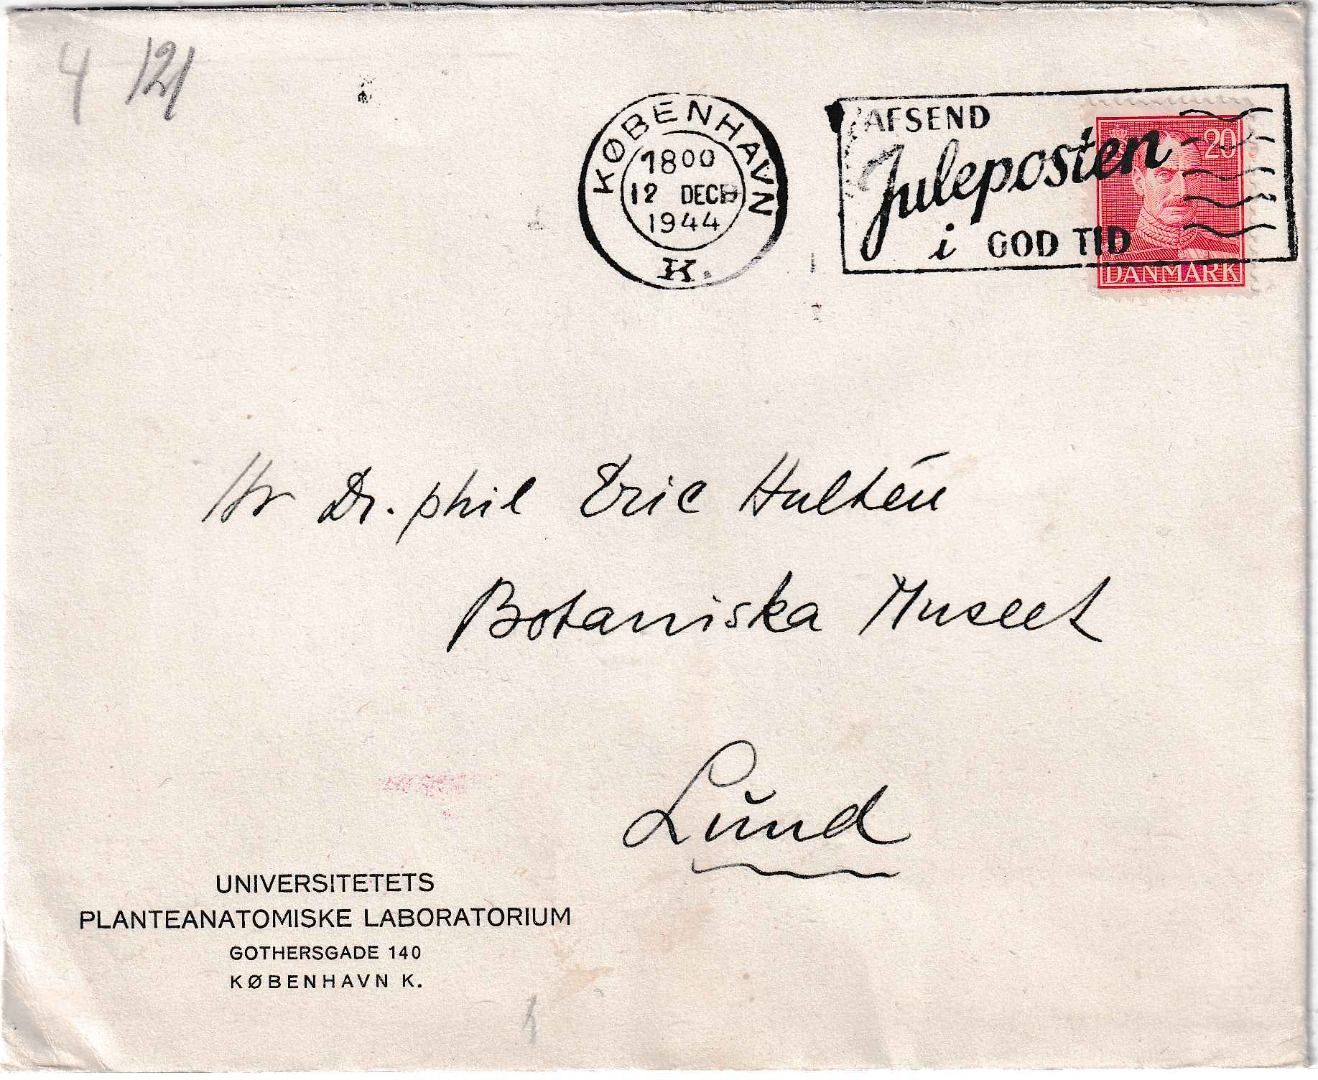 4 121
KØBENHAVN
1800
12 DECB
1944
K.
AFSEND
Juleposten
i GOD TID
20
DANMARK
Hr Dr. phil Eric Hultén
Botaniska Museet
Lund
UNIVERSITETETS
PLANTEANATOMISKE LABORATORIUM
GOTHERSGADE 140
KØBENHAVN K.